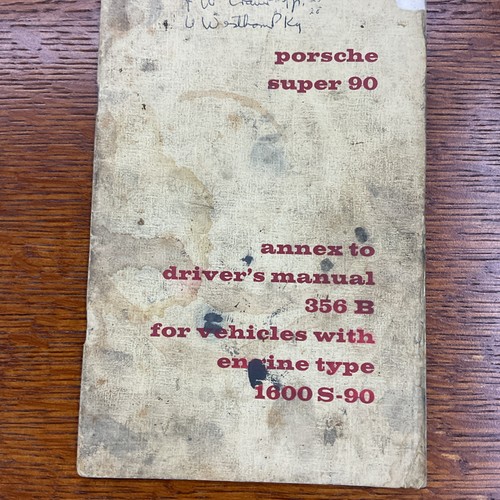 W
Westham Pky
porsche
super 90
annex to
driver's manual
356 B
for vehicles with
engine type
1600 S-90